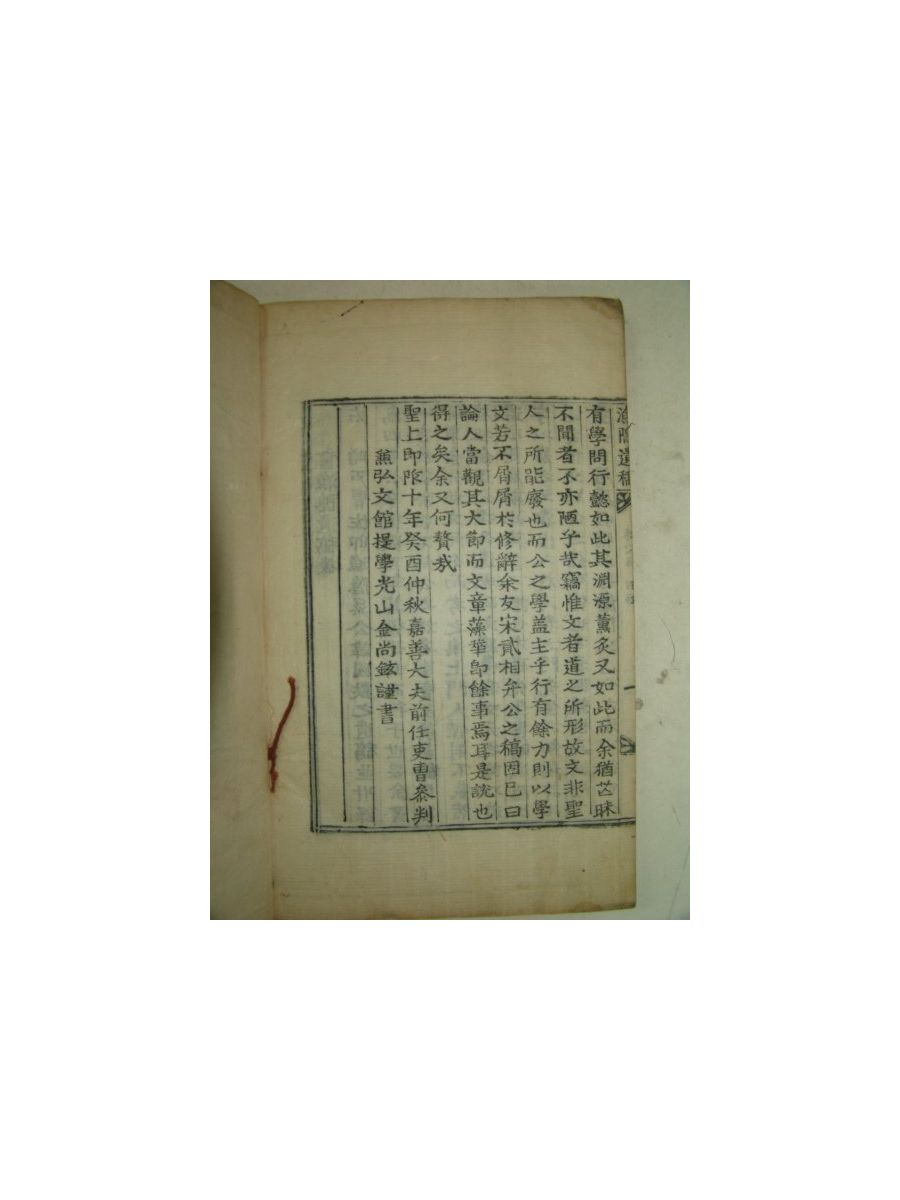 漁隱遺稿
有學問行懿如此其淵源薰炙又如此而余猶芒昧
不聞者不亦陋乎哉竊惟文者道之所形故文非聖
人之所能廢也而公之學盖主乎行有餘力則以學
文若不屑屑於修辭余友宋貳相弁公之稿因已曰
論人當觀其大節而文章藻華卽餘事焉耳是說也
得之矣余又何贅哉
聖上卽阼十年癸酉仲秋嘉善大夫前任吏曹叅判
兼弘文館提學光山金尙鉉謹書